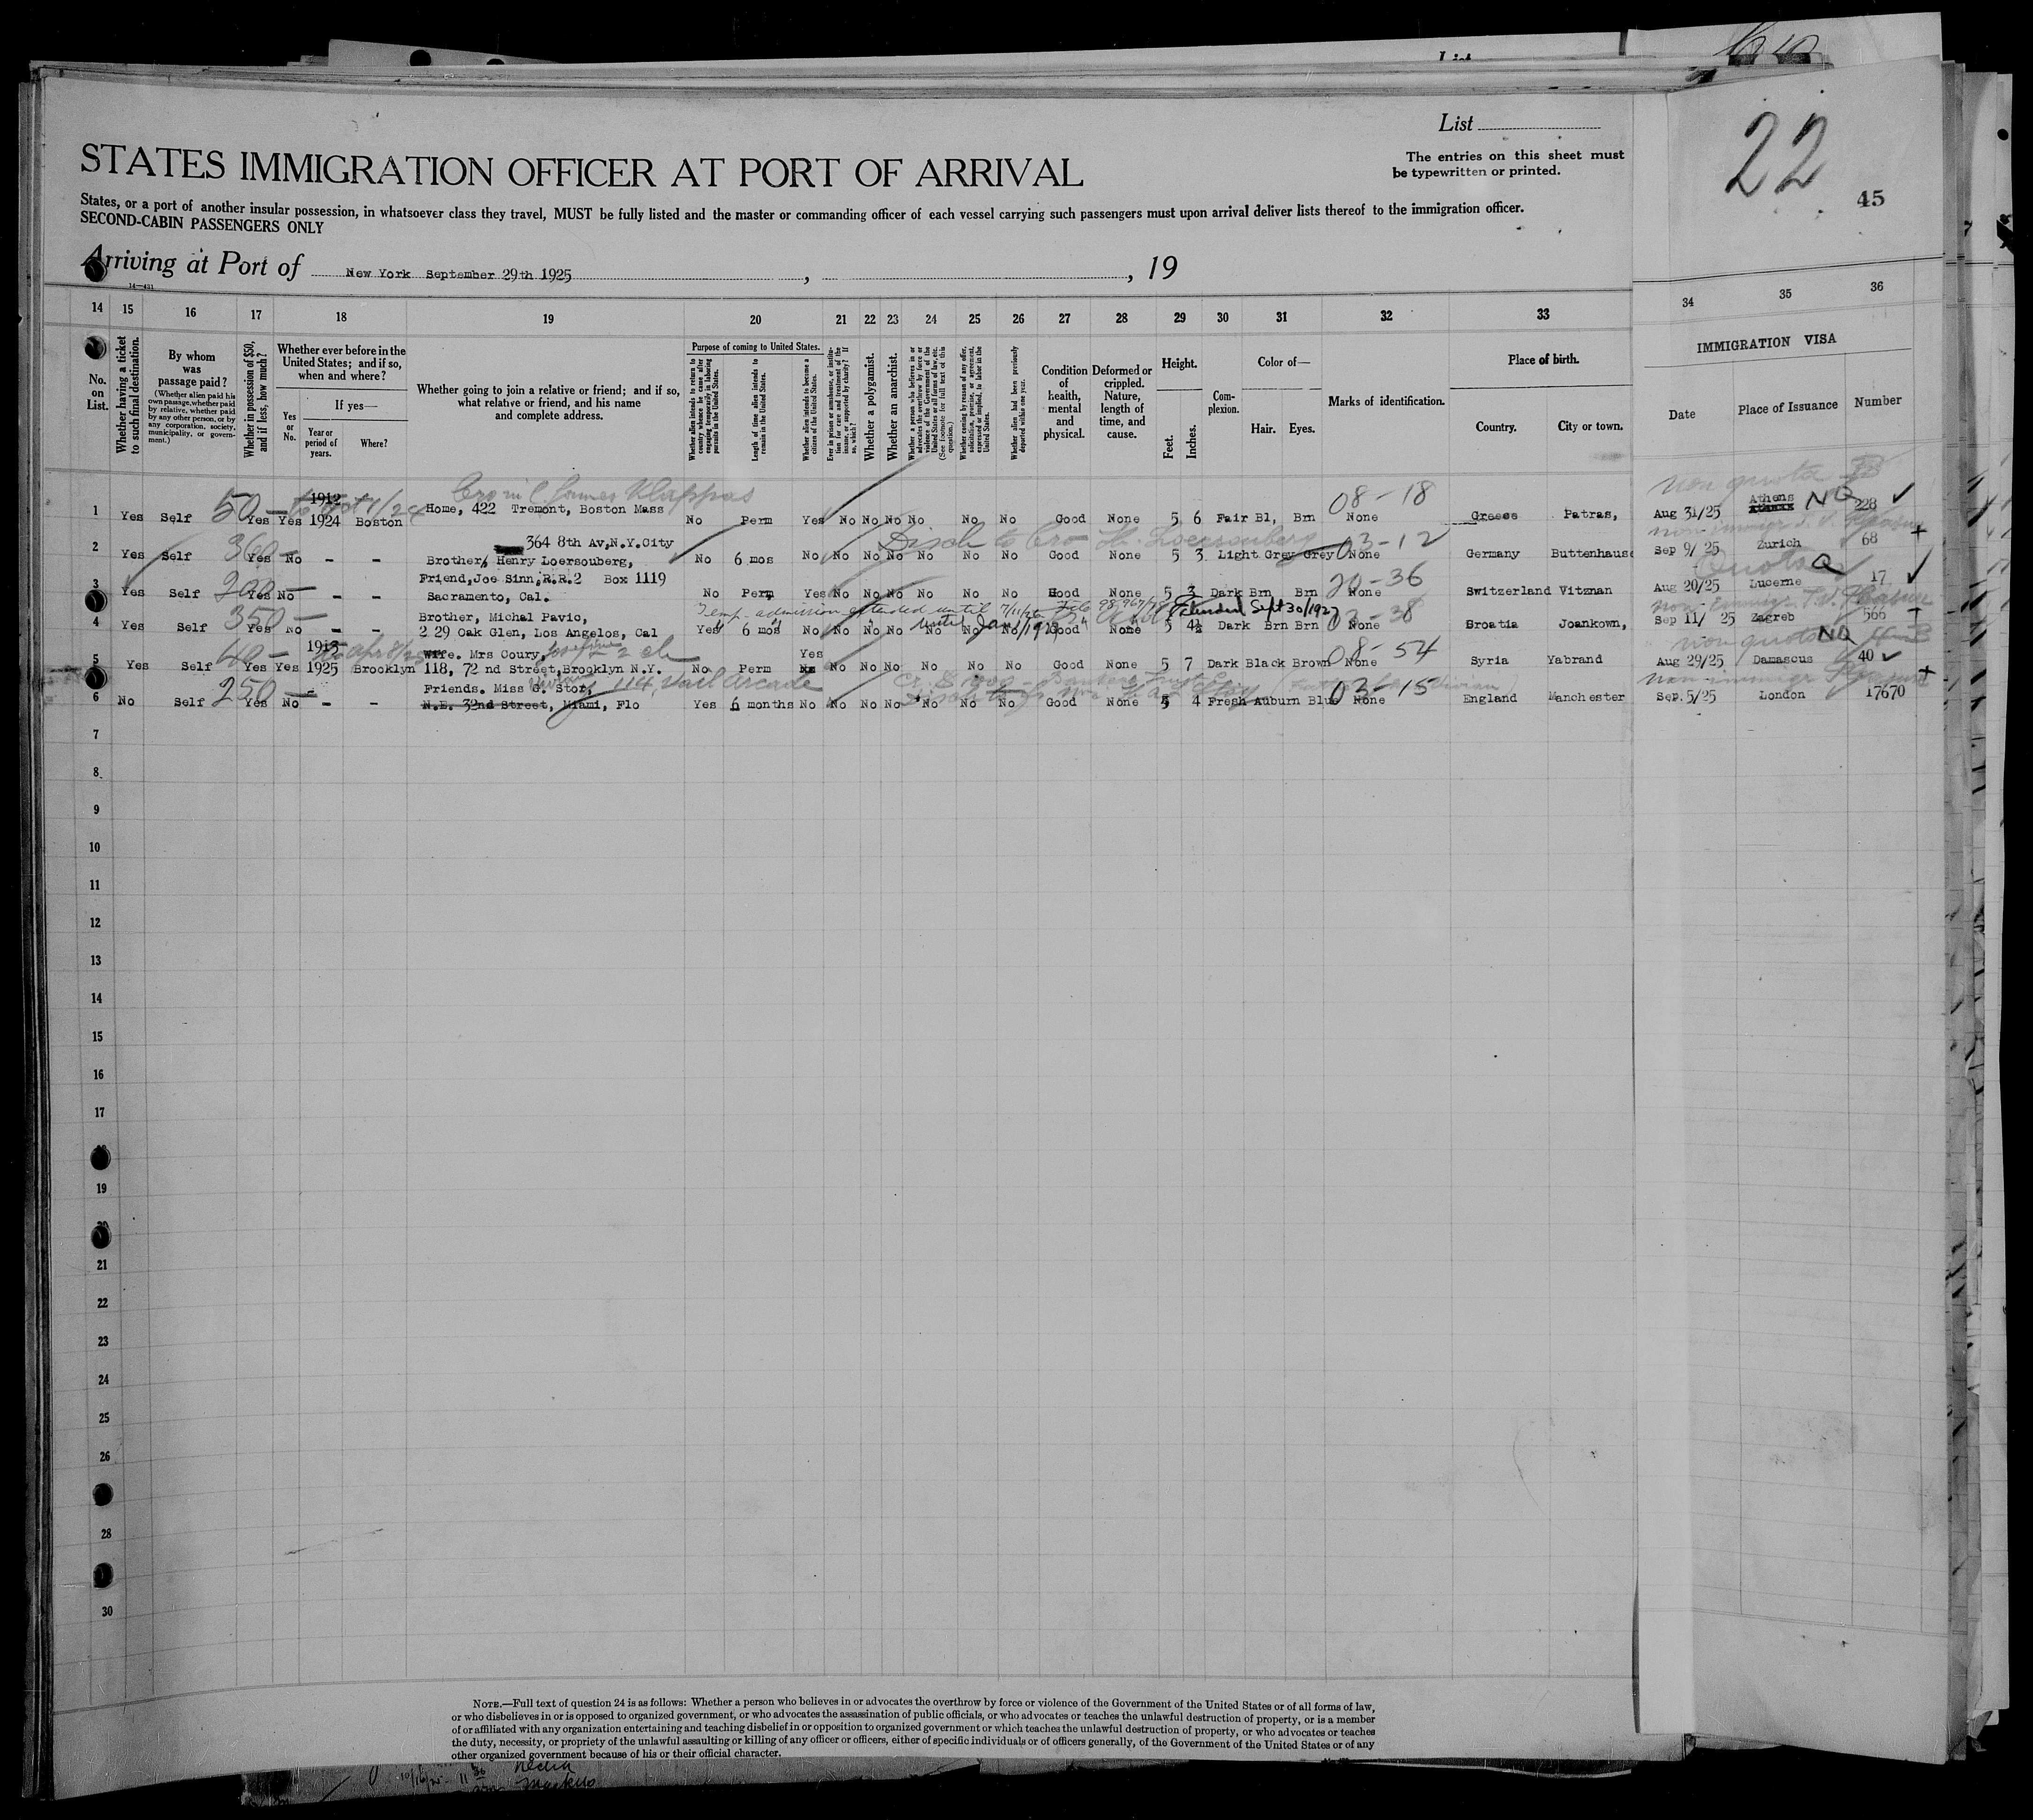 List
22
45
List
STATES IMMIGRATION OFFICER AT PORT OF ARRIVAL
The entries on this sheet must
be typewritten or printed.
States, or a port of another insular possession, in whatsoever class they travel, MUST be fully listed and the master or commanding officer of each vessel carrying such passengers must upon arrival deliver lists thereof to the immigration officer.
SECOND-CABIN PASSENGERS ONLY
Arriving at Port of New York September 29th 1925 , , 19
14—431
14 15 16 17 18 19 20 21 22 23 24 25 26 27 28 29 30 31 32 33 34 35 36
No. on List.
Whether having a ticket to such final destination.
By whom was passage paid?
(Whether alien paid his own passage, whether paid by relative, whether paid by any other person, or by any corporation, society, municipality, or government.)
Whether in possession of $50, and if less, how much?
Whether ever before in the United States; and if so, when and where?
Yes or No.
If yes—
Year or period of years.
Where?
Whether going to join a relative or friend; and if so, what relative or friend, and his name and complete address.
Purpose of coming to United States.
Whether alien intends to return to country whence he came after engaging temporarily in laboring pursuits in the United States.
Length of time alien intends to remain in the United States.
Whether alien intends to become a citizen of the United States.
Ever in prison or almshouse, or institution for care and treatment of the insane, or supported by charity? If so, which?
Whether a polygamist.
Whether an anarchist.
Whether a person who believes in or advocates the overthrow by force or violence of the Government of the United States or all forms of law, etc. (See footnote for full text of this question.)
Whether coming by reason of any offer, solicitation, promise, or agreement, expressed or implied, to labor in the United States.
Whether alien had been previously deported within one year.
Condition of health, mental and physical.
Deformed or crippled. Nature, length of time, and cause.
Height.
Feet. Inches.
Complexion.
Color of—
Hair. Eyes.
Marks of identification.
Place of birth.
Country. City or town.
IMMIGRATION VISA
Date Place of Issuance Number
non quota
1912 08-18 Athens NQ
1 Yes Self 50 Yes Yes 1924 Boston Home, 422 Tremont, Boston Mass No Perm Yes No No No No No No Good None 5 6 Fair Bl, Brn None Greece Patras, Aug 31/25 228
364 8th Av, N.Y. City
2 Yes Self 300 Yes No - - Brother, Henry Loersouberg, No 6 mos No No No No No No No Good None 5 3 Light Grey Grey 03-12 None Germany Buttenhause Sep 9/ 25 Zurich 68
Friend, Joe Sinn, R.R.2 Box 1119 20-36 Quota Q
3 Yes Self 200 Yes No - - Sacramento, Cal. No Perm Yes No No No No No No Good None 5 3 Dark Brn Brn None Switzerland Vitzman Aug 20/25 Lucerne 17
Temp. admission extended until 7/11/26 Extended Sept 30/1927
Brother, Michal Pavio,
4 Yes Self 350 Yes No - - 2 29 Oak Glen, Los Angelos, Cal Yes 6 mos No No No No No No No Good None 5 4½ Dark Brn Brn 03-38 None Sroatia Joankown, Sep 11/ 25 Zagreb 566
1913 Wife. Mrs Coury, Josefine 2 ch Yes 08-54 non quota NQ
5 Yes Self 40 Yes Yes 1925 Brooklyn 118, 72 nd Street, Brooklyn N.Y. No Perm No No No No No No No Good None 5 7 Dark Black Brown None Syria Yabrand Aug 29/25 Damascus 40
Friends. Miss G. Stor, 114, Vail Arcade 03-15
6 No Self 250 Yes No - - N.E. 32nd Street, Miami, Flo Yes 6 months No No No No No No No Good None 5 4 Fresh Auburn Blue None England Manchester Sep. 5/25 London 17670
7
8
9
10
11
12
13
14
15
16
17
19
21
22
23
24
25
26
28
30
NOTE.—Full text of question 24 is as follows: Whether a person who believes in or advocates the overthrow by force or violence of the Government of the United States or of all forms of law,
or who disbelieves in or is opposed to organized government, or who advocates the assassination of public officials, or who advocates or teaches the unlawful destruction of property, or is a member
of or affiliated with any organization entertaining and teaching disbelief in or opposition to organized government or which teaches the unlawful destruction of property, or who advocates or teaches
the duty, necessity, or propriety of the unlawful assaulting or killing of any officer or officers, either of specific individuals or of officers generally, of the Government of the United States or of any
other organized government because of his or their official character.